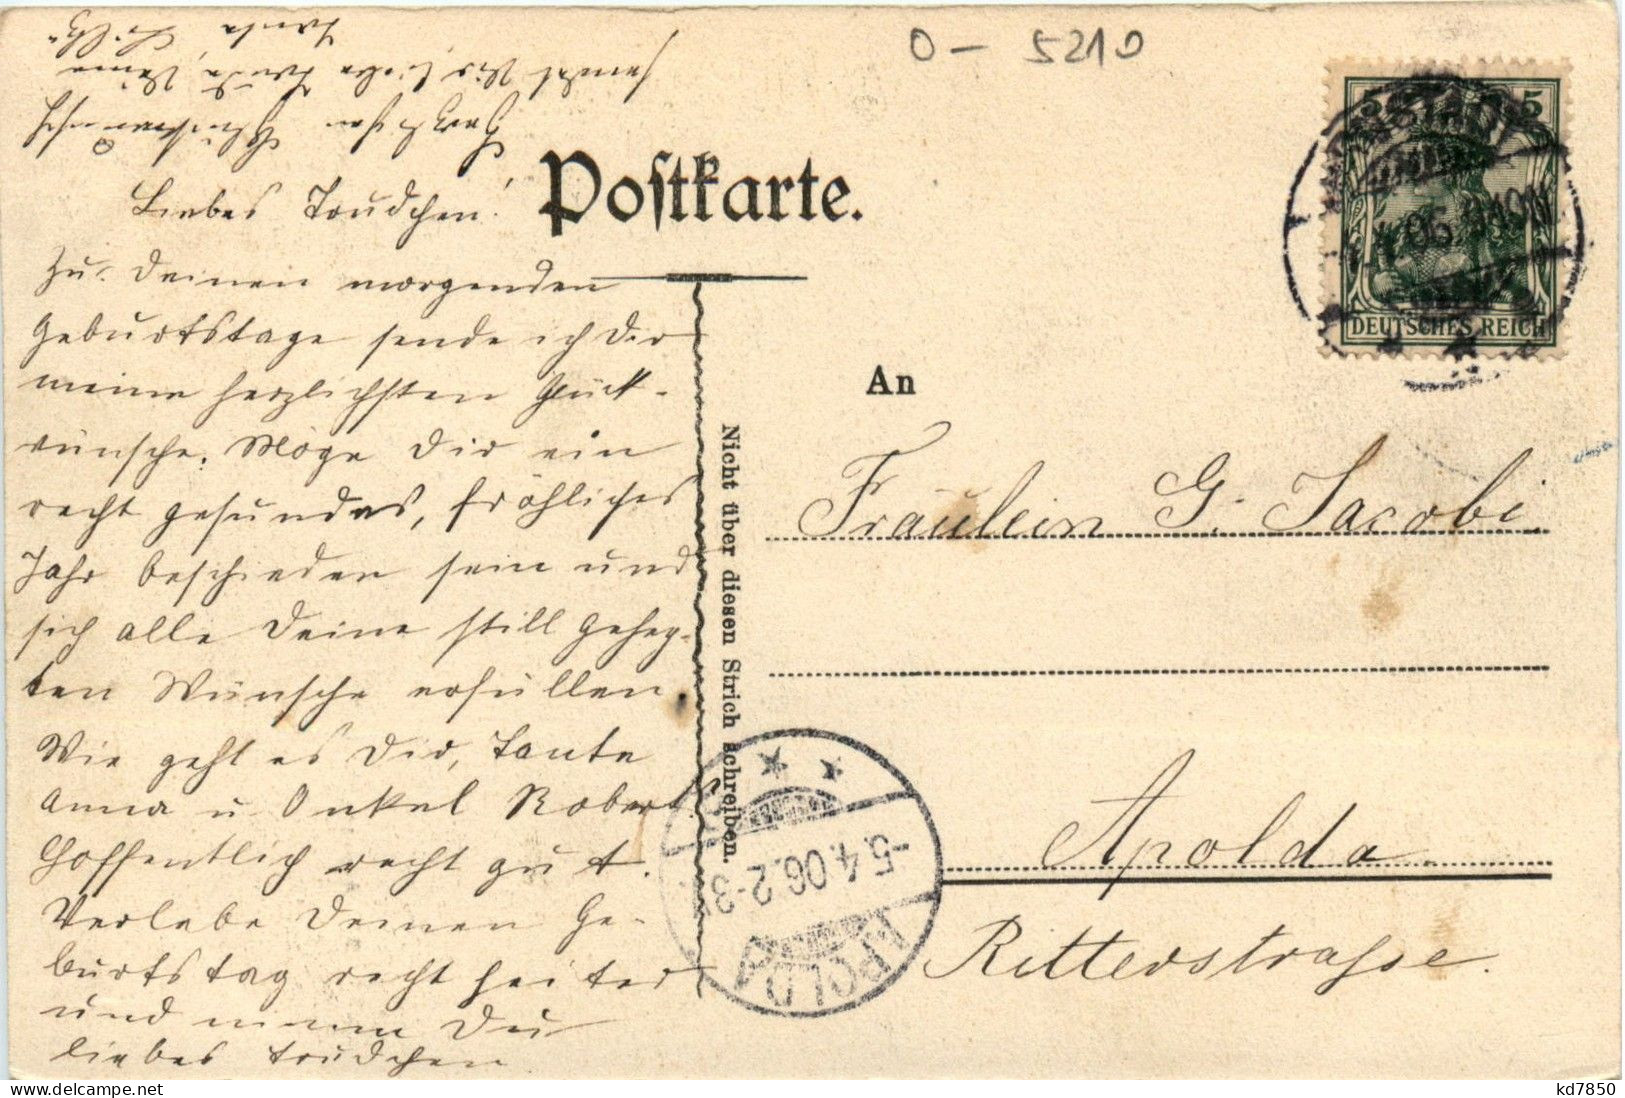 0 - 5210
Postkarte.
Liebes Trudchen!
Zu Deinem morgenden
Geburtstage sende ich Dir
meine herzlichsten Glück-
wünsche. Möge Dir ein
recht gesundes, fröhliches
Jahr beschieden sein und
sich alle Deine still geheg-
ten Wünsche erfüllen.
Wie geht es Dir, Tante
Anna u. Onkel Robert?
Hoffentlich recht gut.
Verlebe Deinen Ge-
burtstag recht heiter
und nimm Du
liebes Trudchen
herzlichen
sendet Dir liebe Deine
Nicht über diesen Strich schreiben.
5 5
DEUTSCHES REICH
An
Fräulein G. Jacobi.
Apolda.
Ritterstrasse.
APOLDA
-5.4.06.2-3
kd7850